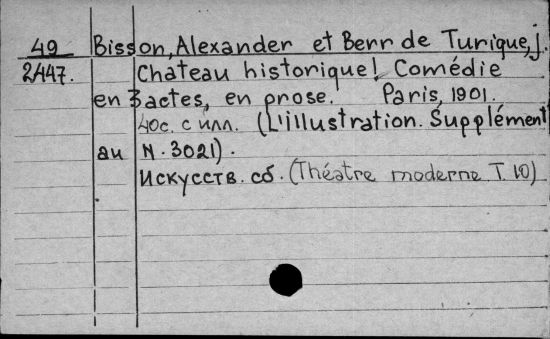 49 Bisson, Alexander et Berr de Turique, j.
2447. Château historique! Comédie
en 3 actes, en prose. Paris, 1901.
40с. с илл. (L'illustration. Supplément
au N. 3021).
Искусств. сб. (Théatre moderne T. 10)